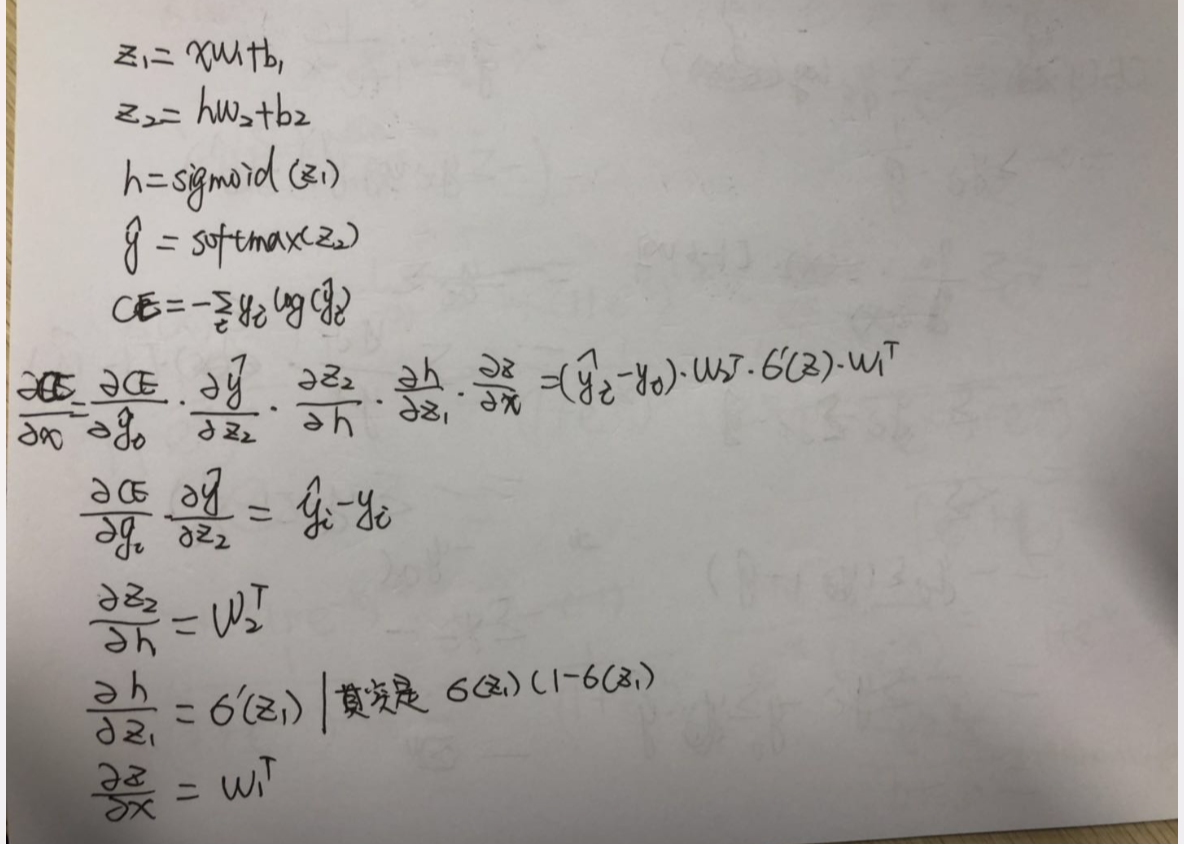 z₁ = xw₁+b₁
z₂ = hw₂+b₂
h = sigmoid(z₁)
ŷ = softmax(z₂)
CE = -∑ᵢ yᵢ log(ŷᵢ)
∂CE/∂x = ∂CE/∂ŷ₀ · ∂ŷ/∂z₂ · ∂z₂/∂h · ∂h/∂z₁ · ∂z/∂x = (ŷᵢ-y₀)·w₂ᵀ·σ'(z)·w₁ᵀ
∂CE/∂ŷᵢ ∂ŷ/∂z₂ = ŷᵢ-yᵢ
∂z₂/∂h = W₂ᵀ
∂h/∂z₁ = σ'(z₁) | 其实是 σ(z₁)(1-σ(z₁)
∂z/∂x = W₁ᵀ